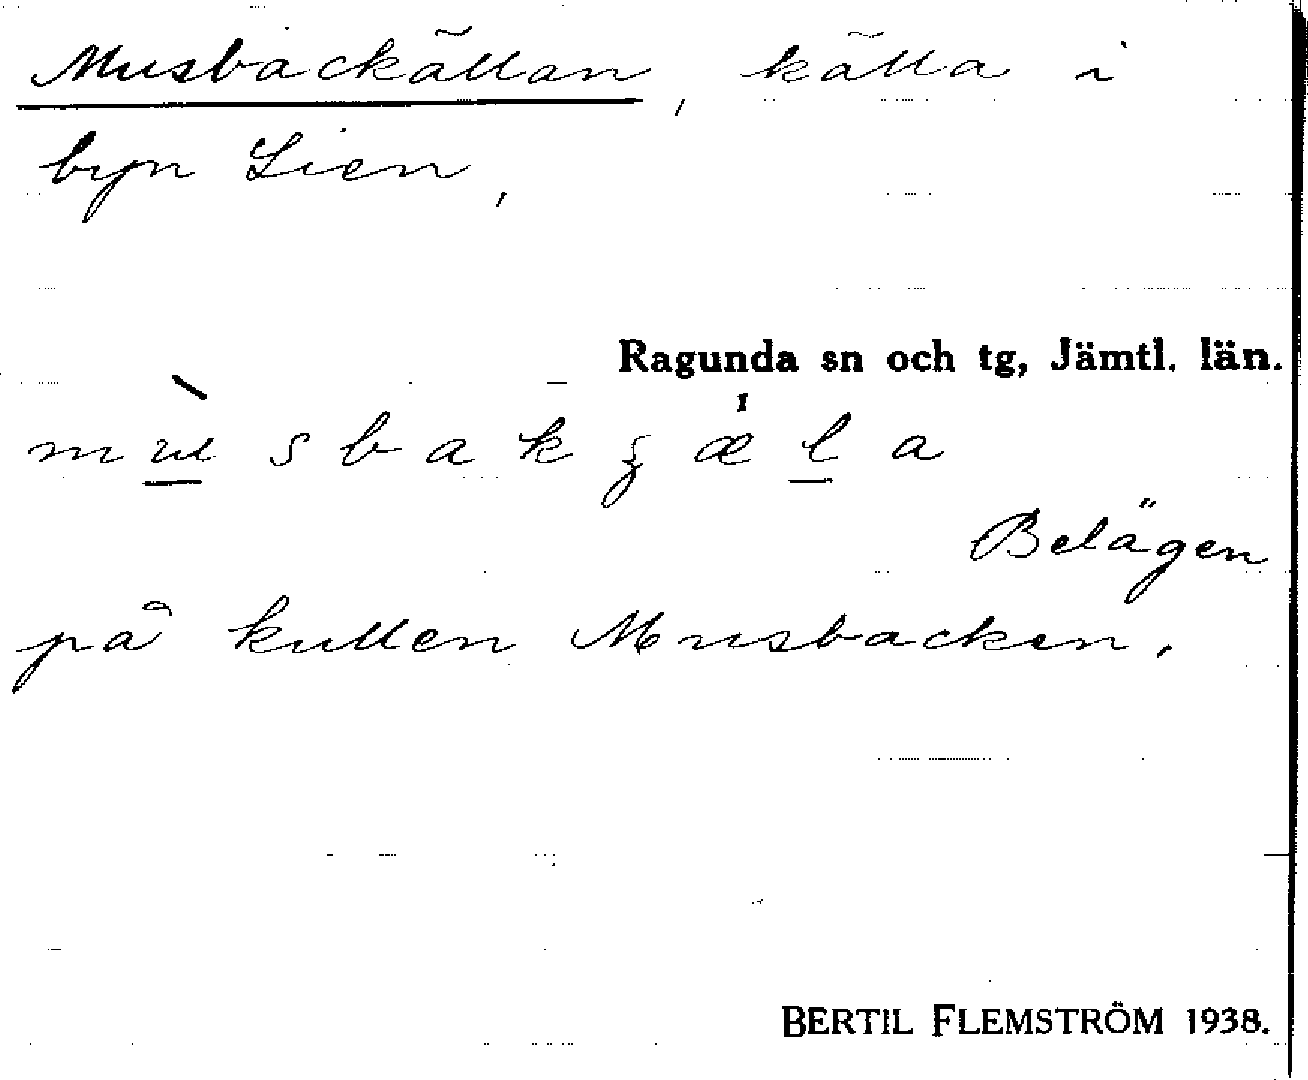 Musbackällan, källa i
byn Lien,
Ragunda sn och tg, Jämtl. län.
Belägen
på kullen Musbacken.
BERTIL FLEMSTRÖM 1938.